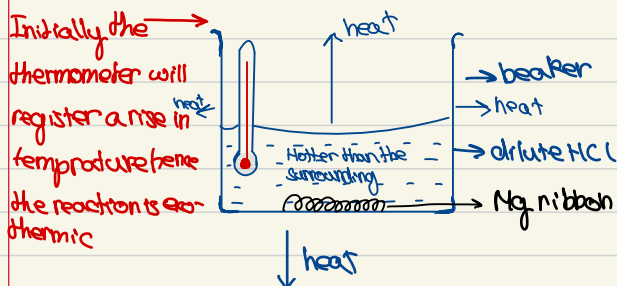 Initially the
thermometer will
register a rise in
temprature hence
the reaction is exo-
thermic
heat
heat
beaker
heat
Hotter than the
surrounding
dilute HCl
Mg ribbon
heat